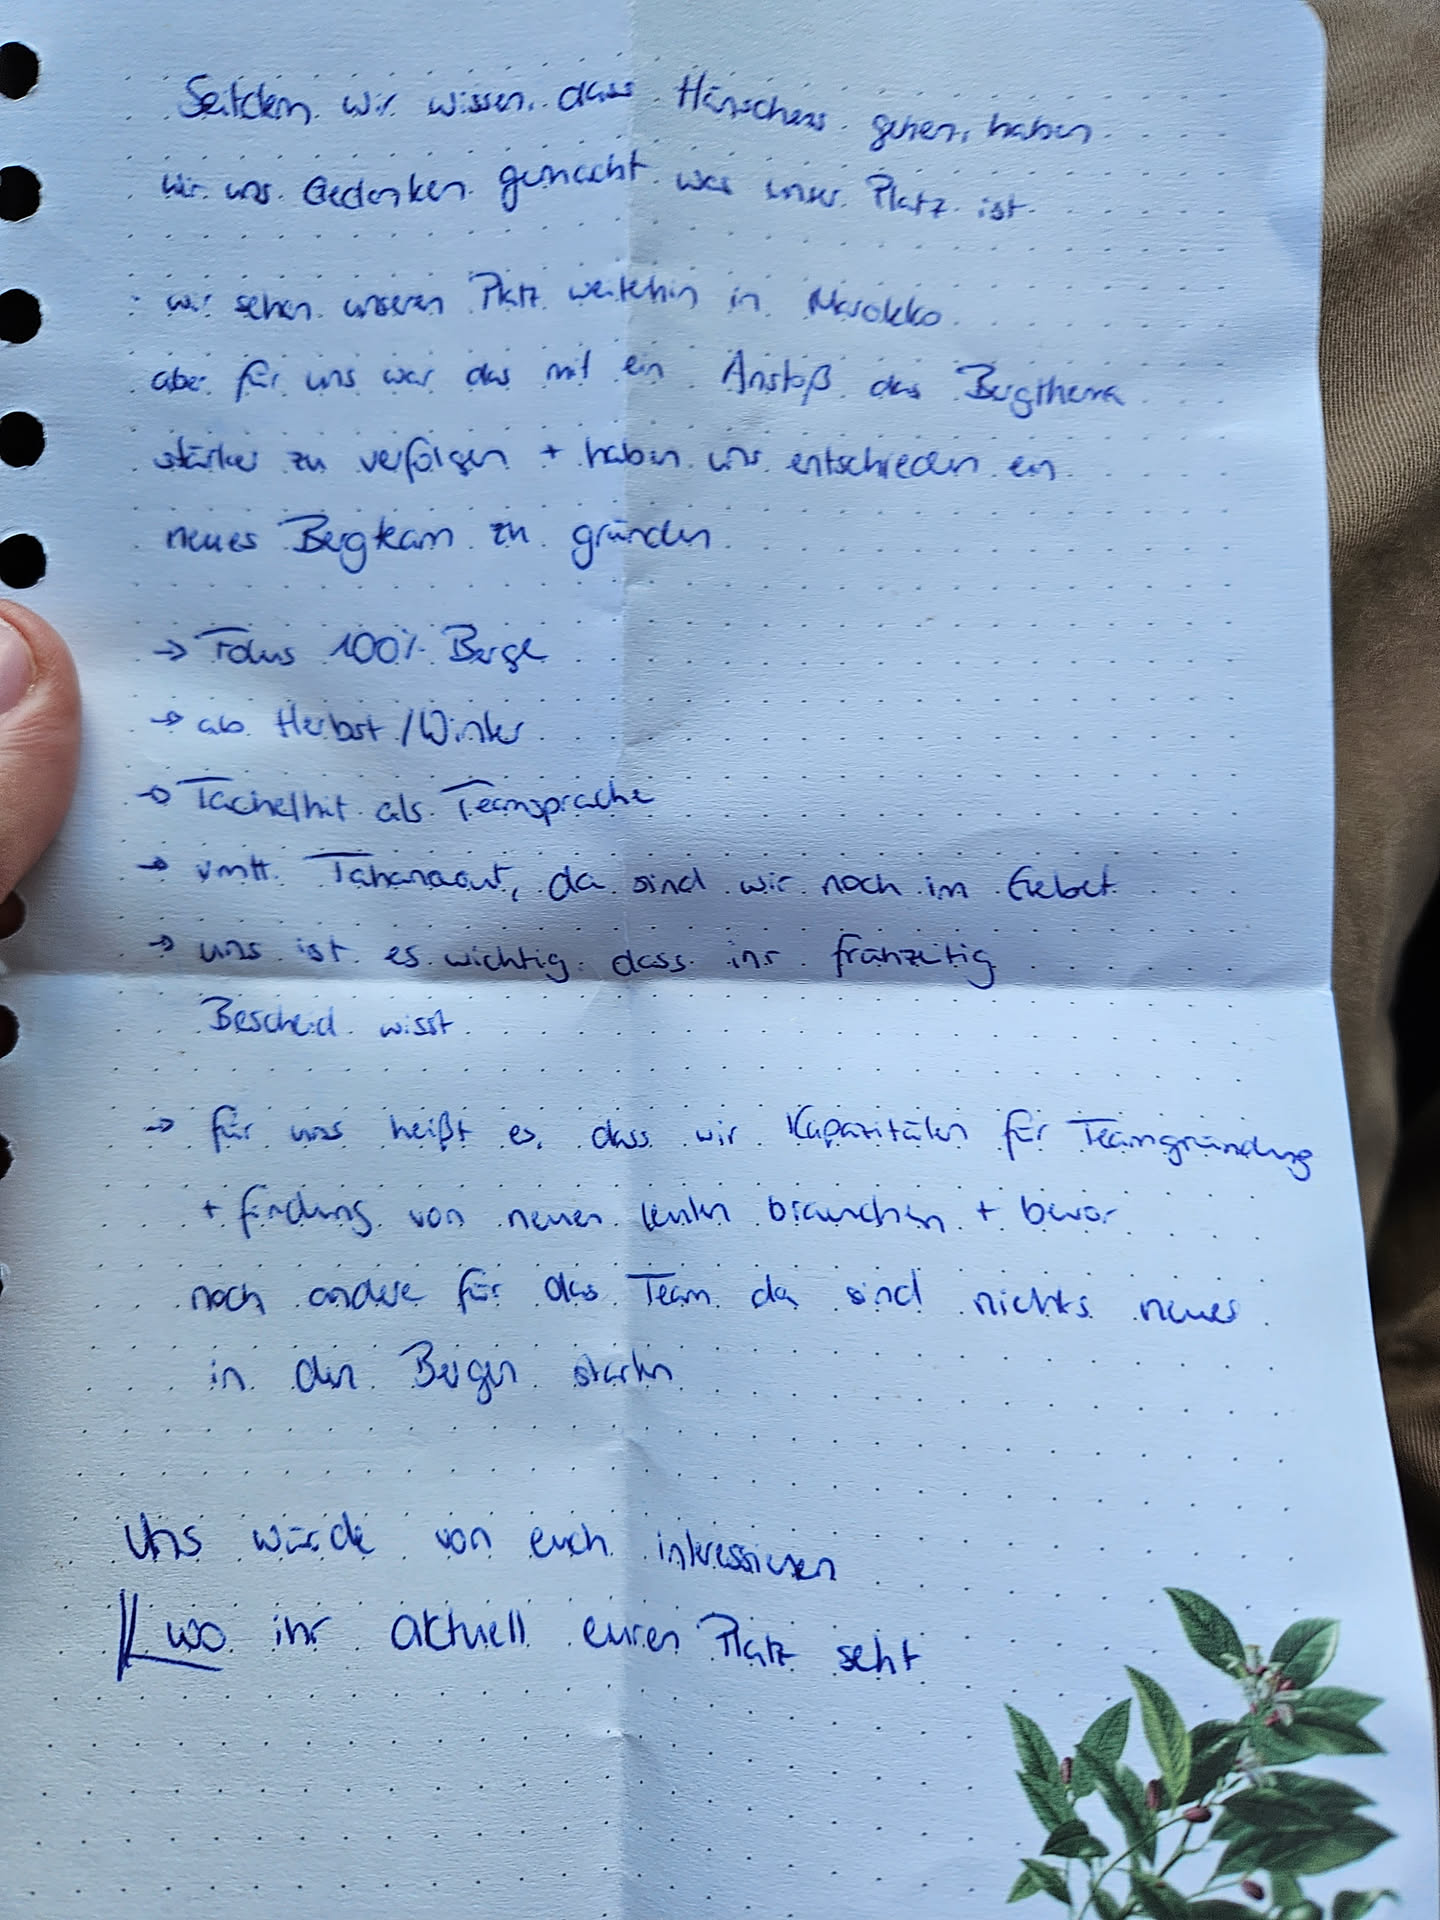 Seitdem wir wissen, dass Hänschens gehen, haben
wir uns Gedanken gemacht was unser Platz ist
wir sehen unseren Platz weiterhin in Marokko
aber für uns war das mit ein Anstoß das Bergthema
stärker zu verfolgen + haben uns entschieden ein
neues Bergteam zu gründen
→ Fokus 100% Berge
→ ab Herbst/Winter
→ Tachelhit als Teamsprache
→ vmtl. Tahanaout, da sind wir noch im Gebet
→ uns ist es wichtig dass ihr frühzeitig
Bescheid wisst
→ für uns heißt es, dass wir Kapazitäten für Teamgründung
+ findung von neuen Leuten brauchen + bevor
noch andere für das Team da sind nichts neues
in den Bergen starten
Uns würde von euch interessieren
wo ihr aktuell euren Platz seht